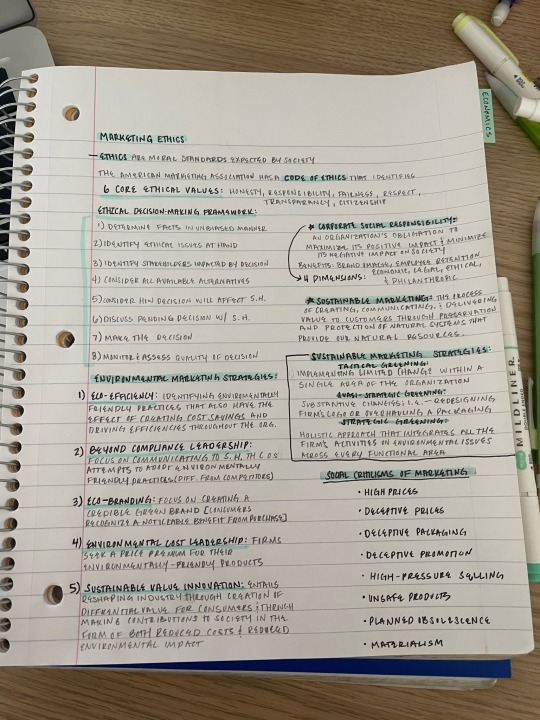 ECONOMICS
MARKETING ETHICS
– ETHICS ARE MORAL STANDARDS EXPECTED BY SOCIETY
THE AMERICAN MARKETING ASSOCIATION HAS A CODE OF ETHICS THAT IDENTIFIES
6 CORE ETHICAL VALUES: HONESTY, RESPONSIBILITY, FAIRNESS, RESPECT,
TRANSPARENCY, CITIZENSHIP
ETHICAL DECISION-MAKING FRAMEWORK:
1) DETERMINE FACTS IN UNBIASED MANNER
2) IDENTIFY ETHICAL ISSUES AT HAND
3) IDENTIFY STAKEHOLDERS IMPACTED BY DECISION
4) CONSIDER ALL AVAILABLE ALTERNATIVES
5) CONSIDER HOW DECISION WILL AFFECT S.H.
6) DISCUSS PENDING DECISION W/ S.H.
7) MAKE THE DECISION
8) MONITOR & ASSESS QUALITY OF DECISION
ENVIRONMENTAL MARKETING STRATEGIES:
1) ECO-EFFICIENCY: IDENTIFYING ENVIRONMENTALLY
FRIENDLY PRACTICES THAT ALSO HAVE THE
EFFECT OF CREATING COST SAVINGS AND
DRIVING EFFICIENCIES THROUGHOUT THE ORG.
2) BEYOND COMPLIANCE LEADERSHIP:
FOCUS ON COMMUNICATING TO S.H. TH CO'S
ATTEMPTS TO ADOPT ENVIRONMENTALLY
FRIENDLY PRACTICES (DIFF. FROM COMPETITORS)
3) ECO-BRANDING: FOCUS ON CREATING A
CREDIBLE GREEN BRAND [CONSUMERS
RECOGNIZE A NOTICEABLE BENEFIT FROM PURCHASE]
4) ENVIRONMENTAL COST LEADERSHIP: FIRMS
SEEK A PRICE PREMIUM FOR THEIR
ENVIRONMENTALLY-FRIENDLY PRODUCTS
5) SUSTAINABLE VALUE INNOVATION: ENTAILS
RESHAPING INDUSTRY THROUGH CREATION OF
DIFFERENTIAL VALUE FOR CONSUMERS & THROUGH
MAKING CONTRIBUTIONS TO SOCIETY IN THE
FORM OF BOTH REDUCED COSTS & REDUCED
ENVIRONMENTAL IMPACT
* CORPORATE SOCIAL RESPONSIBILITY:
AN ORGANIZATION'S OBLIGATION TO
MAXIMIZE ITS POSITIVE IMPACT & MINIMIZE
ITS NEGATIVE IMPACT ON SOCIETY
BENEFITS: BRAND IMAGE, EMPLOYEE RETENTION
4 DIMENSIONS: ECONOMIC, LEGAL, ETHICAL,
& PHILANTHROPIC
* SUSTAINABLE MARKETING: THE PROCESS
OF CREATING, COMMUNICATING, & DELIVERING
VALUE TO CUSTOMERS THROUGH PRESERVATION
AND PROTECTION OF NATURAL SYSTEMS THAT
PROVIDE OUR NATURAL RESOURCES.
SUSTAINABLE MARKETING STRATEGIES:
TACTICAL GREENING:
IMPLEMENTING LIMITED CHANGE WITHIN A
SINGLE AREA OF THE ORGANIZATION
QUASI-STRATEGIC GREENING:
SUBSTANTIVE CHANGES; I.E. – REDESIGNING
FIRMS LOGO OR OVERHAULING A PACKAGING
STRATEGIC GREENING:
HOLISTIC APPROACH THAT INTEGRATES ALL THE
FIRM'S ACTIVITIES IN ENVIRONMENTAL ISSUES
ACROSS EVERY FUNCTIONAL AREA
SOCIAL CRITICISMS OF MARKETING
• HIGH PRICES
• DECEPTIVE PRICES
• DECEPTIVE PACKAGING
• DECEPTIVE PROMOTION
• HIGH-PRESSURE SELLING
• UNSAFE PRODUCTS
• PLANNED OBSOLESCENCE
• MATERIALISM
MILDLINER